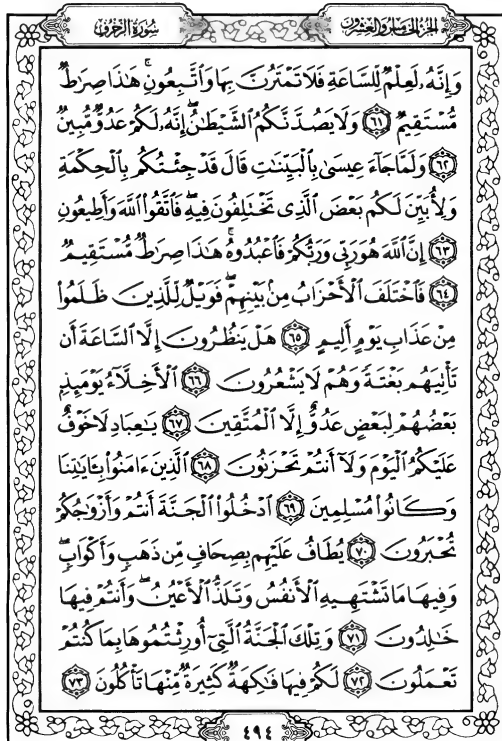 سُورَةُ الزُّخْرُفِ
الجُزءُ الخَامِسُ وَالعِشْرُونَ
وَإِنَّهُۥ لَعِلْمٌ لِّلسَّاعَةِ فَلَا تَمْتَرُنَّ بِهَا وَٱتَّبِعُونِ ۚ هَٰذَا صِرَٰطٌ
مُّسْتَقِيمٌ ٦١ وَلَا يَصُدَّنَّكُمُ ٱلشَّيْطَٰنُ ۖ إِنَّهُۥ لَكُمْ عَدُوٌّ مُّبِينٌ
٦٢ وَلَمَّا جَآءَ عِيسَىٰ بِٱلْبَيِّنَٰتِ قَالَ قَدْ جِئْتُكُم بِٱلْحِكْمَةِ
وَلِأُبَيِّنَ لَكُم بَعْضَ ٱلَّذِى تَخْتَلِفُونَ فِيهِ ۖ فَٱتَّقُوا۟ ٱللَّهَ وَأَطِيعُونِ
٦٣ إِنَّ ٱللَّهَ هُوَ رَبِّى وَرَبُّكُمْ فَٱعْبُدُوهُ ۚ هَٰذَا صِرَٰطٌ مُّسْتَقِيمٌ
٦٤ فَٱخْتَلَفَ ٱلْأَحْزَابُ مِنۢ بَيْنِهِمْ ۖ فَوَيْلٌ لِّلَّذِينَ ظَلَمُوا۟
مِنْ عَذَابِ يَوْمٍ أَلِيمٍ ٦٥ هَلْ يَنظُرُونَ إِلَّا ٱلسَّاعَةَ أَن
تَأْتِيَهُم بَغْتَةً وَهُمْ لَا يَشْعُرُونَ ٦٦ ٱلْأَخِلَّآءُ يَوْمَئِذٍۭ
بَعْضُهُمْ لِبَعْضٍ عَدُوٌّ إِلَّا ٱلْمُتَّقِينَ ٦٧ يَٰعِبَادِ لَا خَوْفٌ
عَلَيْكُمُ ٱلْيَوْمَ وَلَآ أَنتُمْ تَحْزَنُونَ ٦٨ ٱلَّذِينَ ءَامَنُوا۟ بِـَٔايَٰتِنَا
وَكَانُوا۟ مُسْلِمِينَ ٦٩ ٱدْخُلُوا۟ ٱلْجَنَّةَ أَنتُمْ وَأَزْوَٰجُكُمْ
تُحْبَرُونَ ٧٠ يُطَافُ عَلَيْهِم بِصِحَافٍ مِّن ذَهَبٍ وَأَكْوَابٍ ۖ
وَفِيهَا مَا تَشْتَهِيهِ ٱلْأَنفُسُ وَتَلَذُّ ٱلْأَعْيُنُ ۖ وَأَنتُمْ فِيهَا
خَٰلِدُونَ ٧١ وَتِلْكَ ٱلْجَنَّةُ ٱلَّتِىٓ أُورِثْتُمُوهَا بِمَا كُنتُمْ
تَعْمَلُونَ ٧٢ لَكُمْ فِيهَا فَٰكِهَةٌ كَثِيرَةٌ مِّنْهَا تَأْكُلُونَ ٧٣
٤٩٤